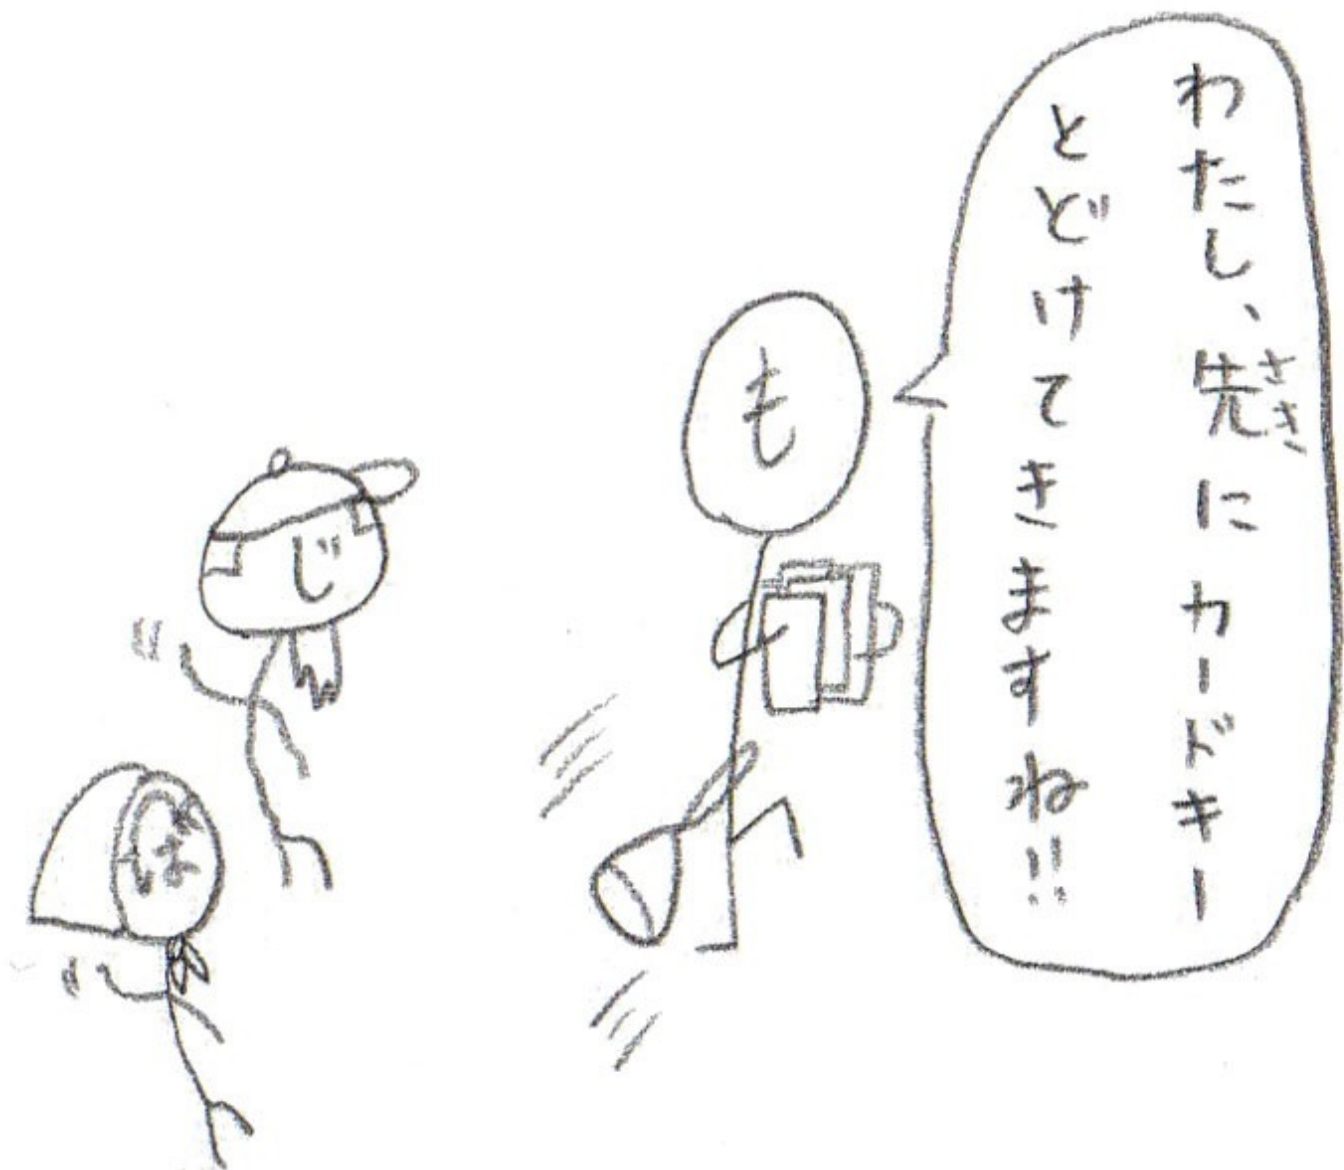 わたし、先にカードキー
さき
とどけてきますね!!
も
じ
ば